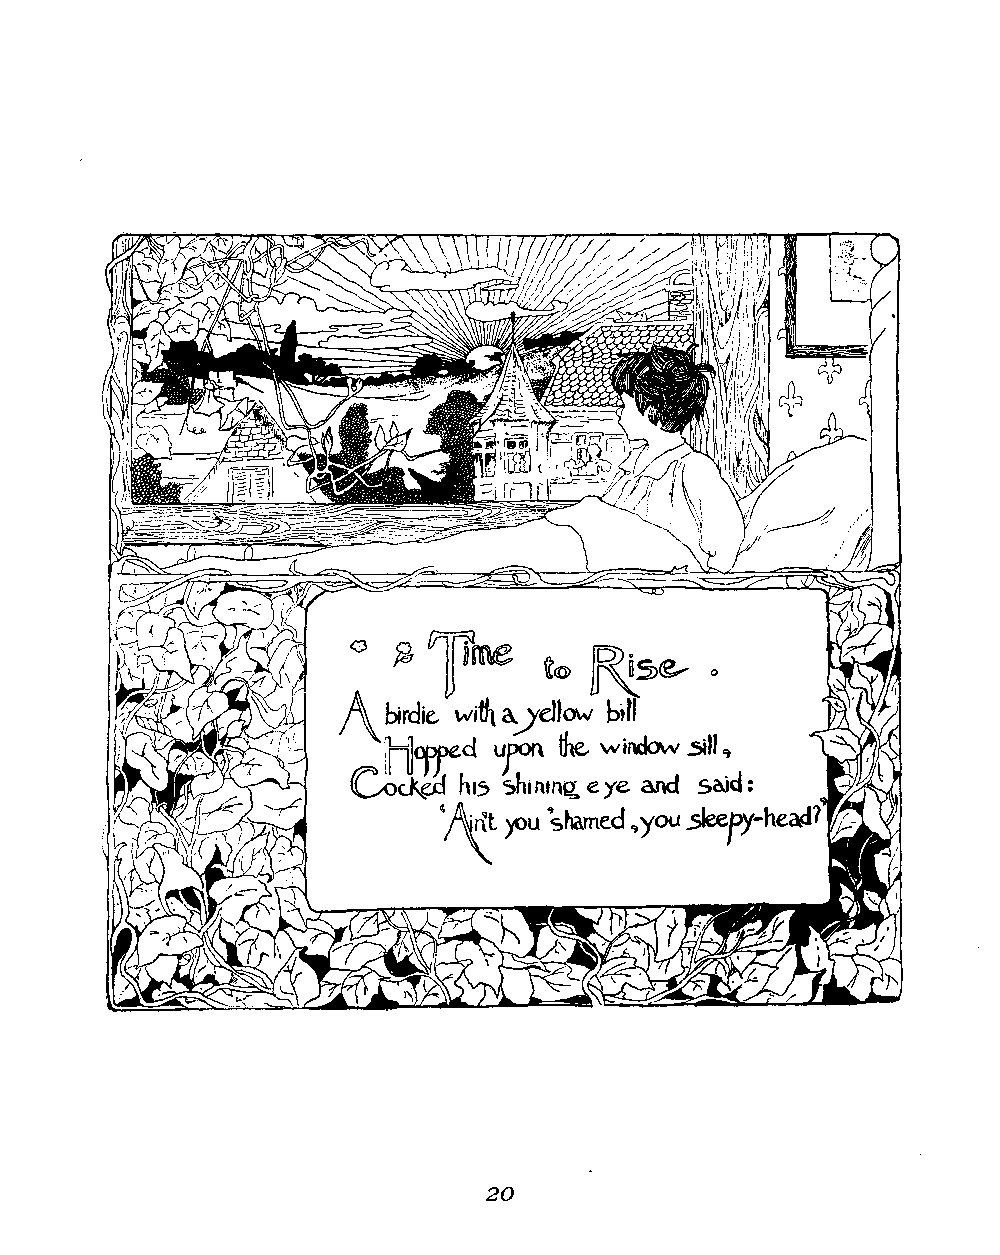 Time to Rise
A birdie with a yellow bill
Hopped upon the window sill,
Cocked his shining eye and said:
"Ain't you 'shamed, you sleepy-head?"
20